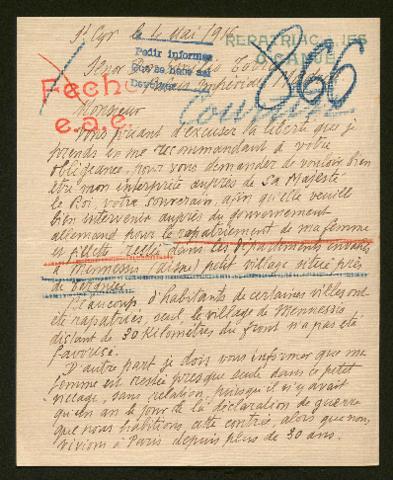 St Cyr le 4 Mai 1916
REPATRIACIONES
O CANJE
Pedir informes
Fecho
e.a.c.
866
Courrière
Monsieur
Vous priant d'excuser la liberté que je
prends en me recommandant à votre
obligeance, pour vous demander de vouloir bien
être mon interprète auprès de Sa Majesté
le Roi, votre souverain, afin qu'elle veuille
bien intervenir auprès du gouvernement
allemand pour le rapatriement de ma femme
et fillette restée dans les départements envahis
à Mennessis (Aisne) petit village situé près
de Tergnier
Beaucoup d'habitants de certaines villes ont
été rapatriés, seul le village de Mennessis
distant de 30 Kilomètres du front n'a pas été
favorisé.
D'autre part je dois vous informer que ma
femme est restée presque seule dans ce petit
village, sans relation, puisque il n'y avait
qu'un an le jour de la déclaration de guerre
que nous habitions cette contrée, alors que nous
vivions à Paris depuis plus de 30 ans.